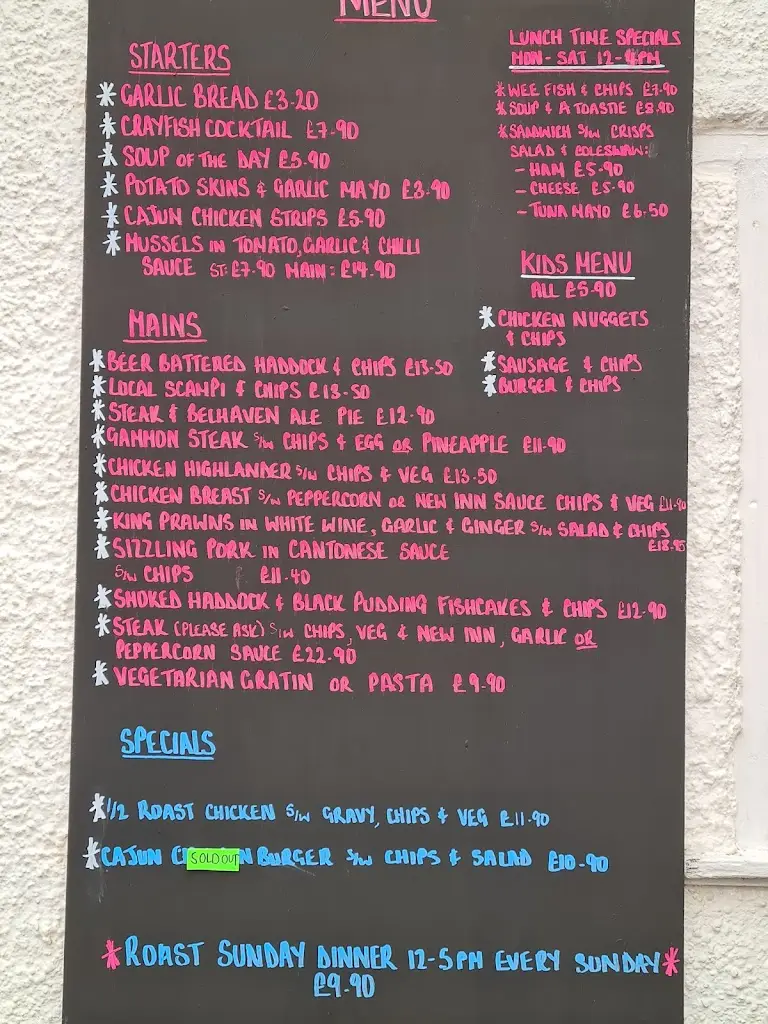 MENU
STARTERS
GARLIC BREAD £3.20
CRAYFISH COCKTAIL £7.90
SOUP OF THE DAY £5.90
POTATO SKINS & GARLIC MAYO £3.90
CAJUN CHICKEN STRIPS £5.90
MUSSELS IN TOMATO, GARLIC & CHILLI
SAUCE ST: £7.90 MAIN: £14.90
LUNCH TIME SPECIALS
MON - SAT 12-4PM
WEE FISH & CHIPS £7.90
SOUP & A TOASTIE £8.90
SANDWICH S/W CRISPS
SALAD & COLESLAW:
- HAM £5.90
- CHEESE £5.90
- TUNA MAYO £6.50
KIDS MENU
ALL £5.90
CHICKEN NUGGETS
& CHIPS
SAUSAGE & CHIPS
BURGER & CHIPS
MAINS
BEER BATTERED HADDOCK & CHIPS £13.50
LOCAL SCAMPI & CHIPS £13.50
STEAK & BELHAVEN ALE PIE £12.90
GAMMON STEAK S/W CHIPS & EGG OR PINEAPPLE £11.90
CHICKEN HIGHLANDER S/W CHIPS & VEG £13.50
CHICKEN BREAST S/W PEPPERCORN OR NEW INN SAUCE CHIPS & VEG £11.90
KING PRAWNS IN WHITE WINE, GARLIC & GINGER S/W SALAD & CHIPS
£18.95
SIZZLING PORK IN CANTONESE SAUCE
S/W CHIPS £11.40
SMOKED HADDOCK & BLACK PUDDING FISHCAKES & CHIPS £12.90
STEAK (PLEASE ASK) S/W CHIPS, VEG & NEW INN, GARLIC OR
PEPPERCORN SAUCE £22.90
VEGETARIAN GRATIN OR PASTA £9.90
SPECIALS
1/2 ROAST CHICKEN S/W GRAVY, CHIPS & VEG £11.90
CAJUN C SOLD OUT N BURGER S/W CHIPS & SALAD £10.90
ROAST SUNDAY DINNER 12-5PM EVERY SUNDAY
£9.90